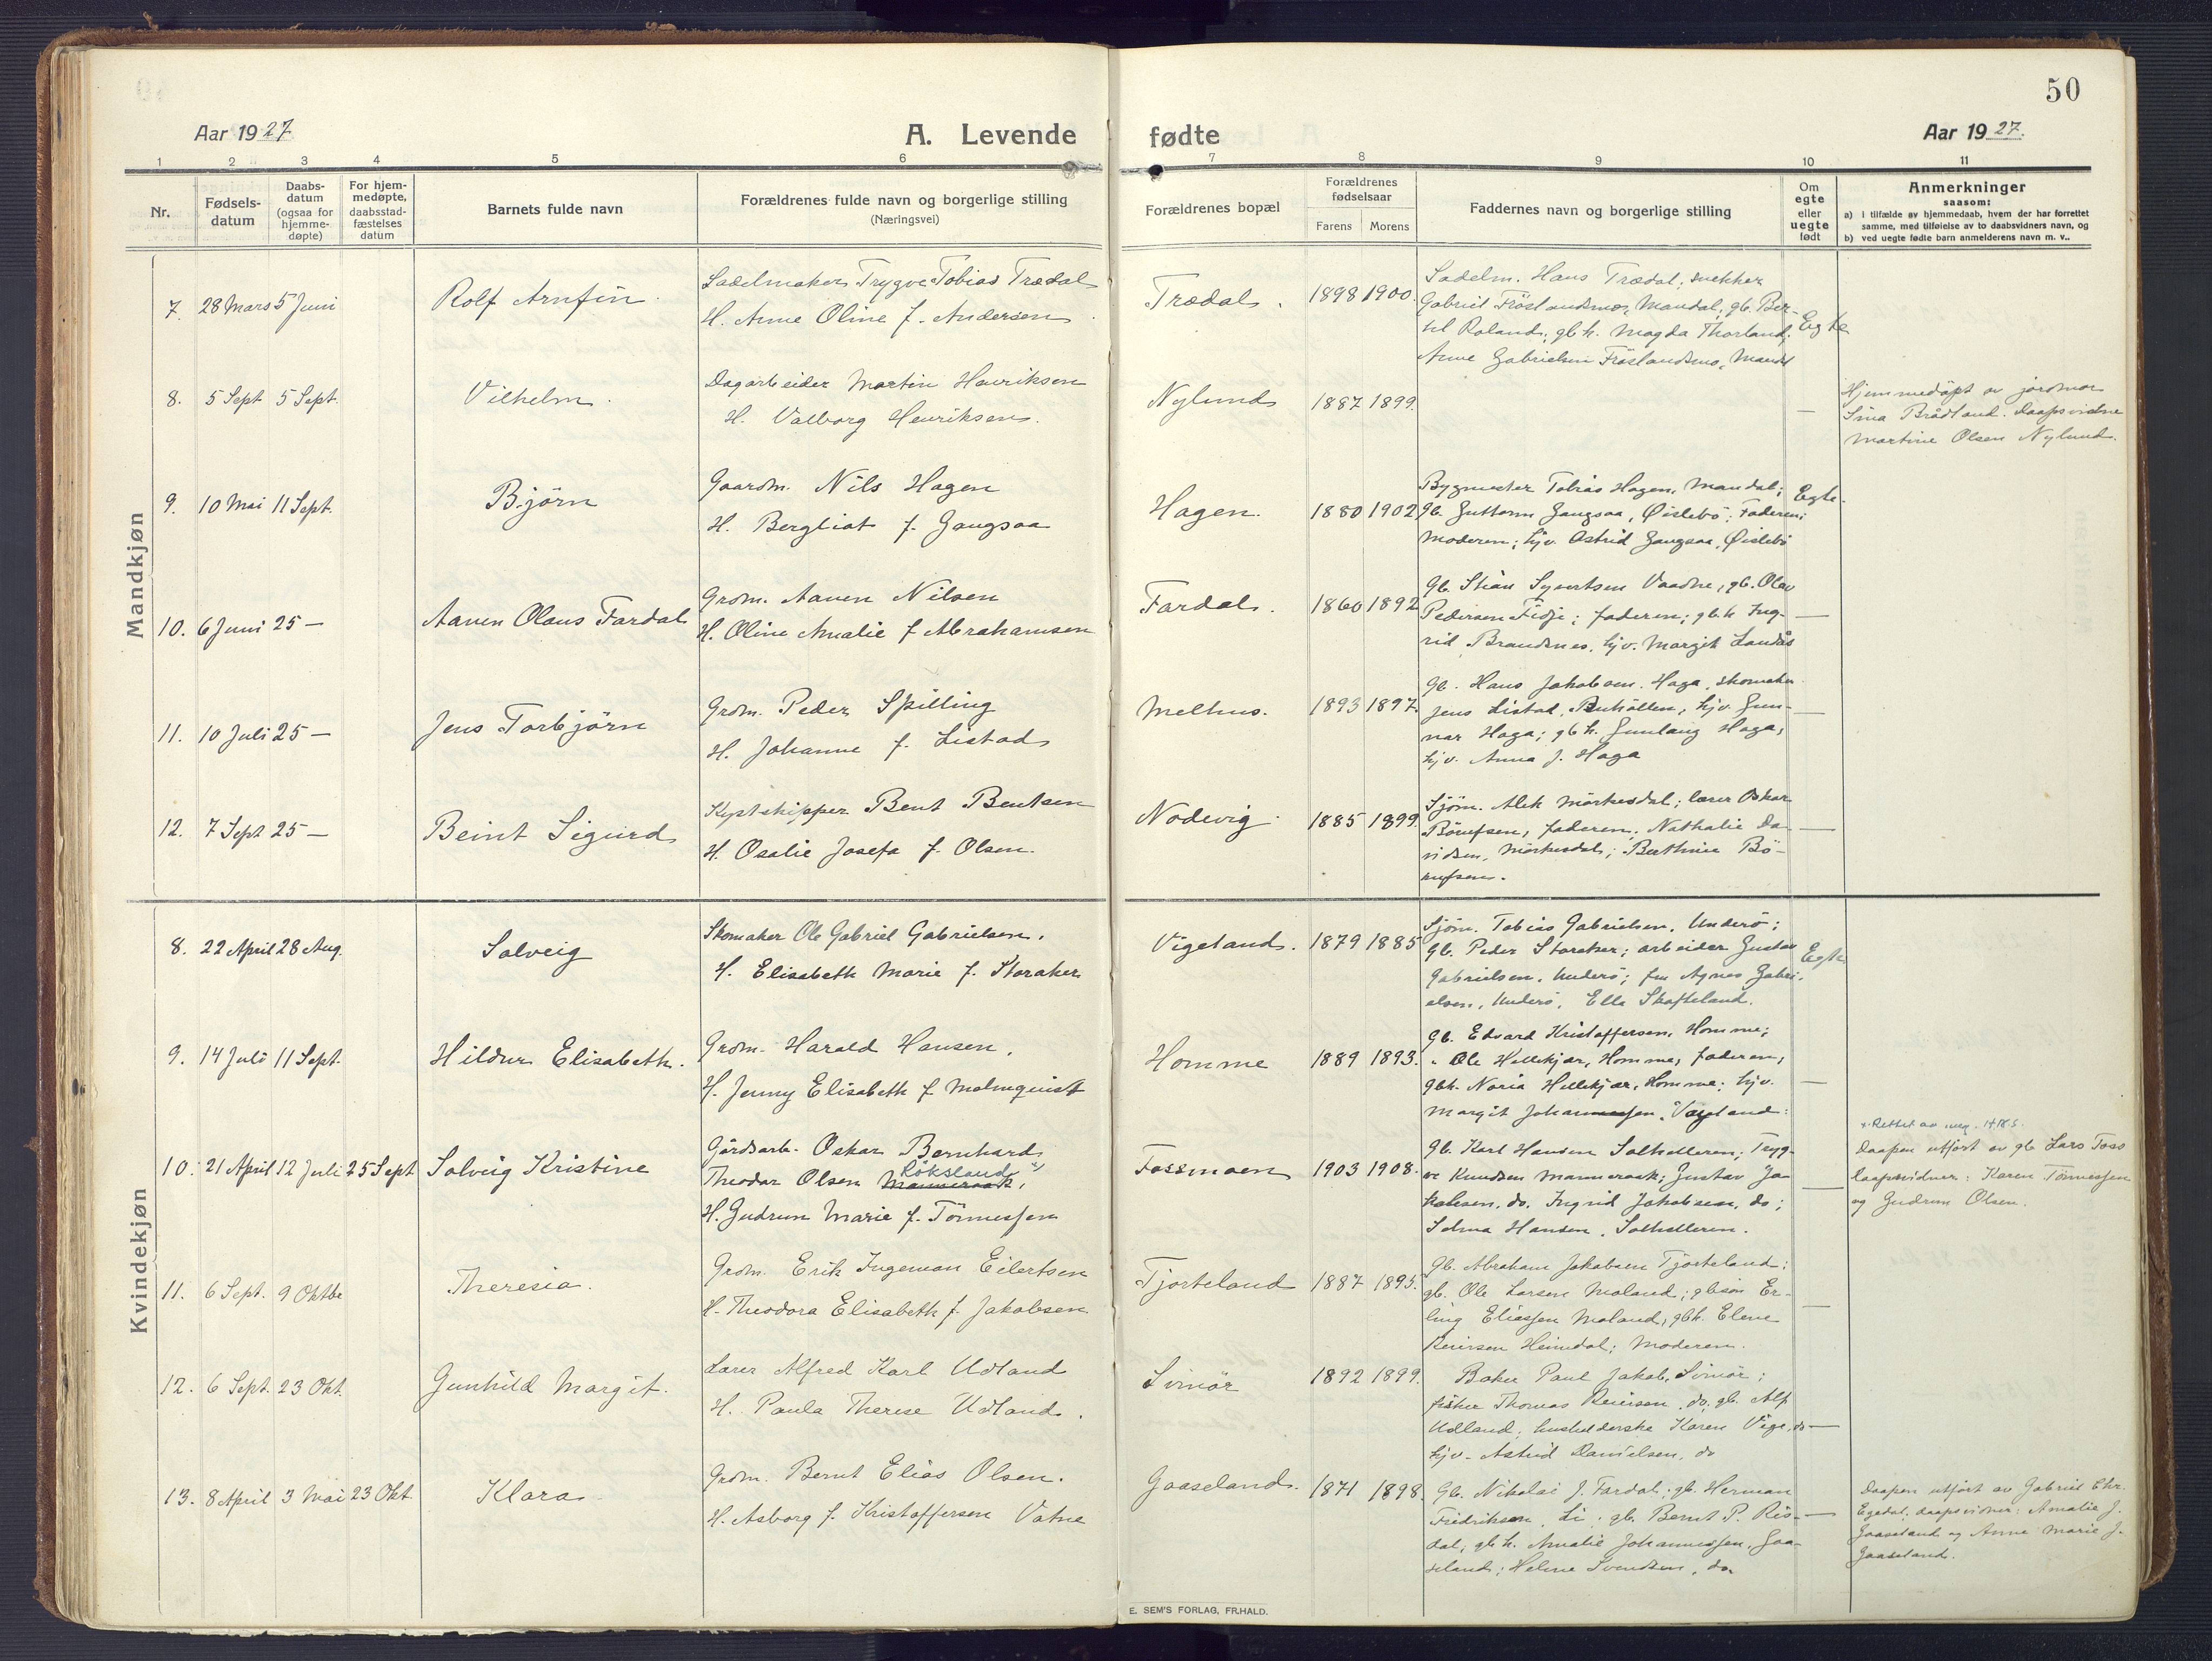 50
Aar 1927
A. Levende
fødte
Aar 1927.
1 2 3 4 5 6 7 8 9 10 11
Nr.
Fødsels-
datum
Daabs-
datum
(ogsaa for
hjemme-
døpte)
For hjem-
medøpte,
daabsstad-
fæstelses
datum
Barnets fulde navn
Forældrenes fulde navn og borgerlige stilling
(Næringsvei)
Forældrenes bopæl
Forældrenes
fødselsaar
Farens Morens
Faddernes navn og borgerlige stilling
Om
egte
eller
uegte
født
Anmerkninger
saasom:
a) i tilfælde av hjemmedaab, hvem der har forrettet
samme, med tilføielse av to daabsvidners navn, og
b) ved uegte fødte barn anmelderens navn m. v..
Mandkjøn
7. 28 Mars 5 Juni
Rolf Arnfin.
Sadelmaker Trygve Tobias Trædal
H. Anne Oline f. Andersen
Trædal.
1898 1900.
Sadelm. Hans Trædal, snekker
Gabriel Fröslandsmo, Mandal, gb. Ber-
til Roland; gbh. Magda Thorland;
Anne Gabrielsen Fröslandsmo, Mandal
Egte
8. 5 Sept 5 Sept.
Vilhelm.
Dagarbeider Martin Henriksen
H. Valborg Henriksen.
Nylund
1887 1899.
—
Hjemmedöpt av jordmor
Sina Brådland. Daapsvidne
Martine Olsen Nylund.
9. 10 Mai 11 Sept.
Björn
Gaardm. Nils Hagen
H. Bergliot f. Gangsaa
Hagen.
1880 1902
Bygmester Tobias Hagen, Mandal;
Gb. Guttorm Gangsaa, Øislebö; Faderen;
Moderen; hjv. Astrid Gangsaa, Øislebö
Egte.
10. 6 Juni 25 —
Aanen Olaus Fardal
Grdm. Aanen Nilsen
H. Oline Amalie f Abrahamsen
Fardal.
1860 1892
Gb. Stian Syvertsen Vaadne, gb. Olav
Pedersen Fidje; faderen; gbh Ing-
rid Brandsnes, hjv. Margit Landås
—
11. 10 Juli 25 —
Jens Torbjörn
Grdm. Peder Spilling
H. Johanne f. Listad
Melhus.
1893 1897.
Gb. Hans Jakobsen Haga, skomaker
Jens Listad, hjv. Gun-
nar Haga; gbh. Gunlaug Haga,
hjv. Anna J. Haga
—
12. 7 Sept 25 —
Beint Sigurd
Kystskipper Bent Bentsen
H. Osalie Josefa f. Olsen.
Nodevig.
1885 1899.
Sjöm. Alek Mörkesdal; lærer Oskar
faderen; Nathalie Da-
vidsen, Mörkesdal; Berthine Bö-
—
Kvindekjøn
8. 22 April 28 Aug.
Solveig
Skomaker Ole Gabriel Gabrielsen.
H. Elisabeth Marie f. Storaker
Vigeland.
1879 1885
Sjöm. Tobias Gabrielsen, Underö;
Gb. Peder Storaker; arbeider Gustav
Gabrielsen, Underö; fru Agnes Gabri-
elsen, Underö. Ella Skofteland.
Egte
9. 14 Juli 11 Sept.
Hildur Elisabeth.
Grdm. Harald Hansen.
H. Jenny Elisabeth f Malmquist
Homme
1889 1893.
Gb. Edvard Kristoffersen, Homme;
" Ole Hellekjær, Homme; faderen,
gbh. Noria Hellekjær, Homme; hjv.
Margit Johannessen, Vigeland.
—
10. 21 April 12 Juli 25 Sept
Solveig Kristine
Gårdsarb. Oskar Bernhard
Röksland x)
Theodor Olsen Manneraak,
H. Gudrun Marie f. Tönnessen
Fossmoen
1903 1908.
Gb. Karl Hansen Solhelleren; Tryg-
ve Knudsen Manneraak; Gustav Ja-
kobsen, do. Ingrid Jakobsen, do;
Selma Hansen, Solhelleren.
—
x. Rettet av meg.
Daapen utfört av gb Lars Foss
Daapsvidner: Karen Tönnessen
og Gudrun Olsen.
11. 6 Sept. 9 Oktbe
Theresia.
Grdm. Erik Ingeman Eilertsen
H. Theodora Elisabeth f. Jakobsen
Tjorteland
1887 1895.
Gb. Abraham Jakobsen Tjorteland;
gb. Ole Larsen Moland; gbsön Er-
ling Eliassen Moland, gbh. Elene
Reiersen Heimdal; Moderen.
—
12. 6 Sept. 23 Okt.
Gunhild Margit.
Lærer Alfred Karl Udland
H. Paula Therese Udland.
Svinör
1892 1899.
Baker Paul Jakob, Svinör;
fisker Thomas Reiersen, do, gb. Alf
Udland; husholderske Karen Vige, do
hjv. Astrid Danielsen, do
—
13. 8 April 3 Mai 23 Okt
Klara
Grdm. Bernt Elias Olsen.
H. Asborg f. Kristoffersen Vatne
Gaaseland.
1871 1898.
Gb. Nikolai J. Fardal; gb. Herman
Fredriksen, Li; gb. Bernt P. Ris-
dal, gbh. Amalie Johannessen, Gaa-
seland; Helene Svendsen, do.
—
Daapen utfört av Gabriel Chr.
Egedal, daapsvidner: Amalie J.
Gaaseland og Anne Marie J.
Gaaseland.
E. SEM'S FORLAG, FR.HALD.